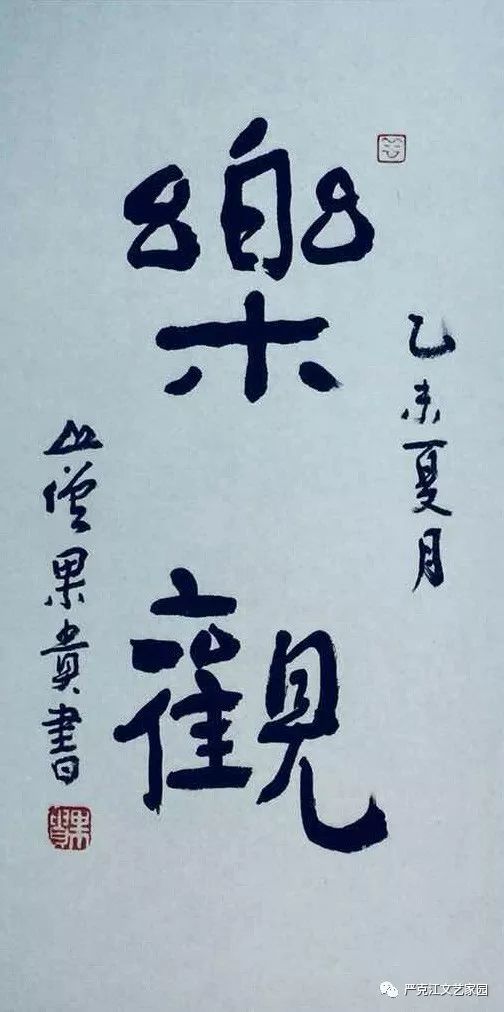 乙未夏月
樂觀
山僧果貴書
果貴
严克江文艺家园